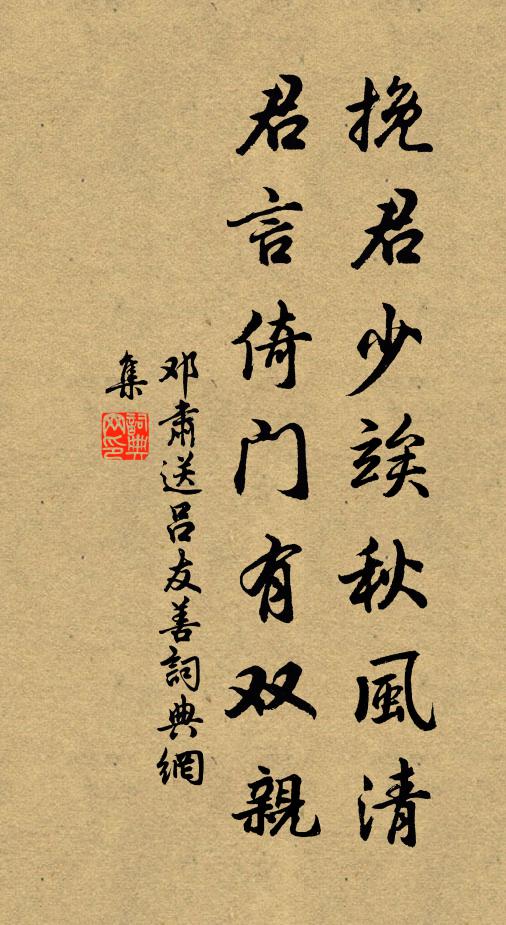 挽君少竢秋風清
君言倚門有双親
邓肅送吕友善詞典網
集
詞典网印